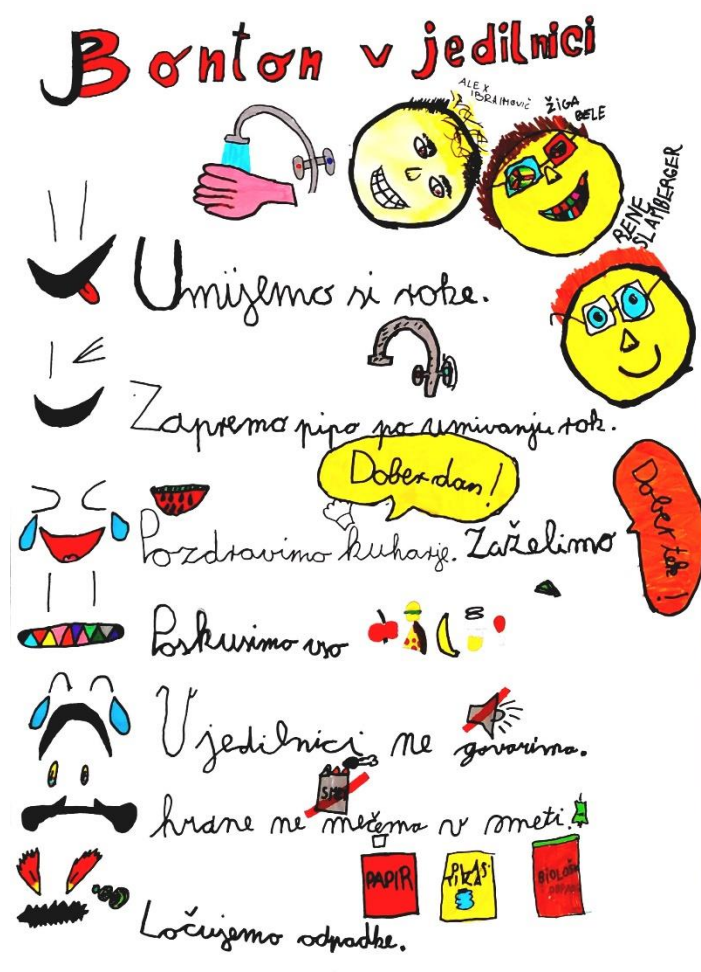 Bonton v jedilnici
ALEX IBRAIMOVIĆ
ŽIGA BELE
RENE SLAMBERGER
Umijemo si roke.
Zapremo pipo po umivanju rok.
Dober dan!
Dober tek!
Pozdravimo kuharje. Zaželimo
Poskusimo vso
V jedilnici ne govorimo.
hrane ne mečemo v smeti.
PAPIR
BIOLOŠKI
Ločujemo odpadke.